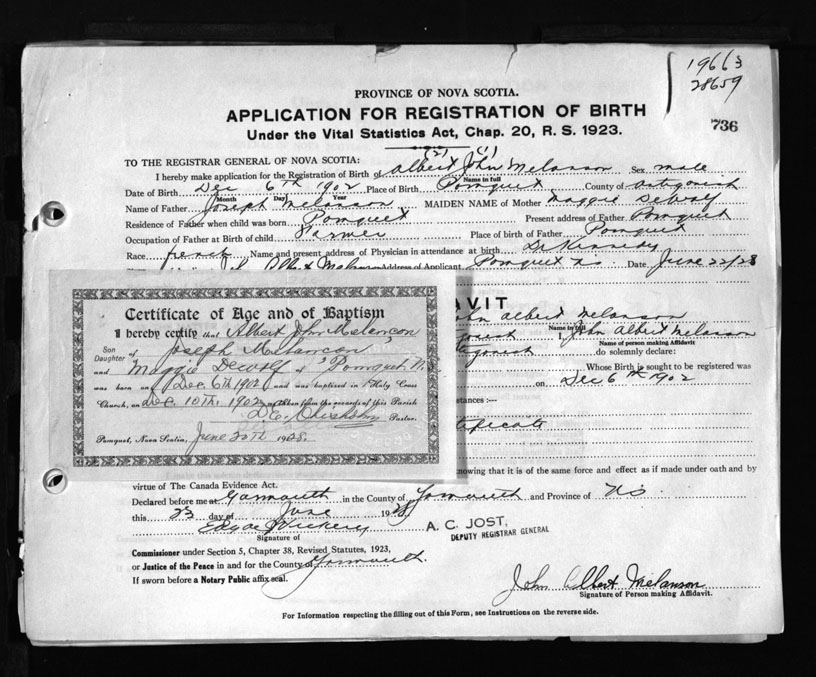 19663
28659
PROVINCE OF NOVA SCOTIA.
APPLICATION FOR REGISTRATION OF BIRTH
Under the Vital Statistics Act, Chap. 20, R. S. 1923.
736
(2) (1)
TO THE REGISTRAR GENERAL OF NOVA SCOTIA:
I hereby make application for the Registration of Birth of Albert John Melanson Sex male
Name in full
Date of Birth Dec 6th 1902 Place of Birth Pomquet County of Antigonish
Month Day Year
Name of Father Joseph Melanson MAIDEN NAME of Mother Maggie DeWolf
Residence of Father when child was born Pomquet Present address of Father Pomquet
Occupation of Father at Birth of child Farmer Place of birth of Father Pomquet
Race french Name and present address of Physician in attendance at birth Dr Kennedy
John Albert Melanson Address of Applicant Pomquet NS Date June 22/28
AVIT
John Albert Melanson
Name in full
I, John Albert Melanson
Name of person making Affidavit
do solemnly declare:
Whose Birth is sought to be registered was
on Dec 6th 1902
stances :—
tificate
Certificate of Age and of Baptism
I hereby certify that Albert John Melancon
Son
Daughter of Joseph Melancon
and Maggie Dewolf of Pomquet N.S.
was born on Dec. 6th 1902 and was baptized in Holy Cross
Church, on Dec. 10th. 1902 as taken from the records of this Parish
D.E. Chisholm Pastor.
Pomquet, Nova Scotia, June 20th 1928.
nowing that it is of the same force and effect as if made under oath and by
virtue of The Canada Evidence Act.
Declared before me at Yarmouth in the County of Yarmouth and Province of NS.
this 23 day of June 1928
Signature of
A. C. JOST,
DEPUTY REGISTRAR GENERAL
Commissioner under Section 5, Chapter 38, Revised Statutes, 1923,
or Justice of the Peace in and for the County of Yarmouth.
If sworn before a Notary Public affix seal.
John Albert Melanson
Signature of Person making Affidavit.
For Information respecting the filling out of this Form, see Instructions on the reverse side.